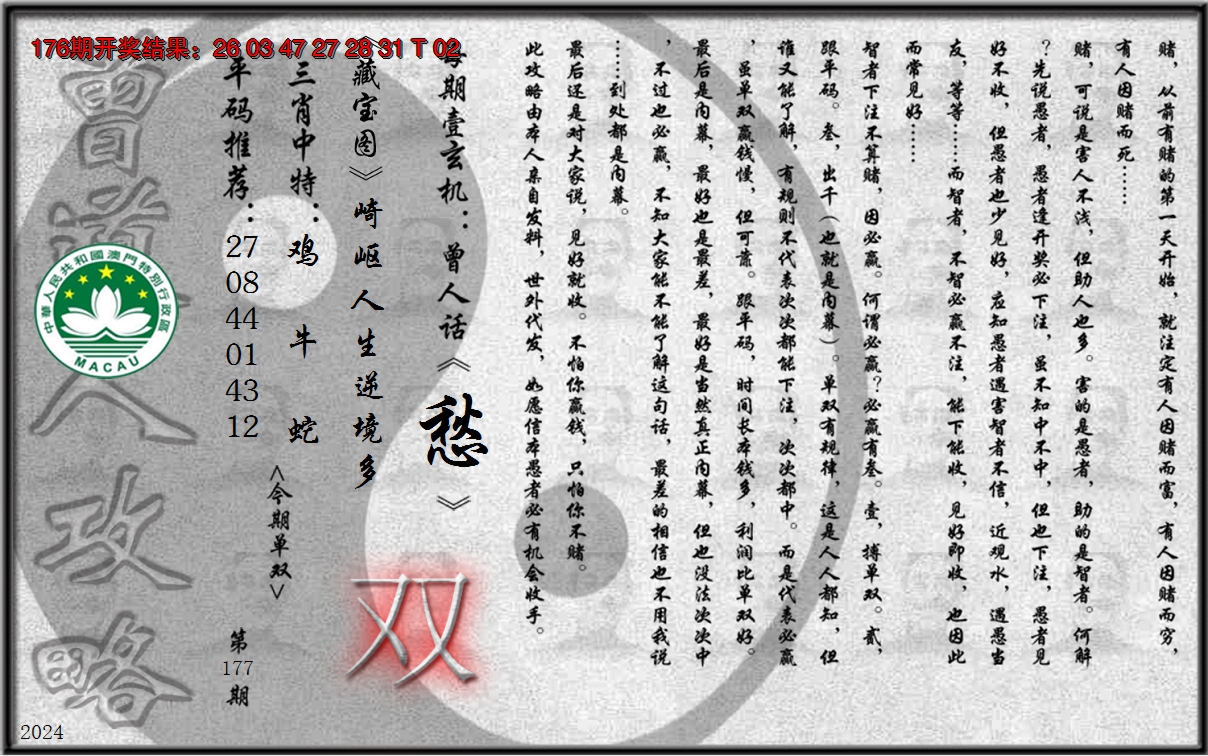 176期开奖结果：26 03 47 27 28 31 T 02
赌，从前有赌的第一天开始，就注定有人因赌而富，有人因赌而穷，
有人因赌而死……
赌，可说是害人不浅，但助人也多。害的是愚者，助的是智者。何解
？先说愚者，愚者逢开奖必下注，虽不知中不中，但也下注，愚者见
好不收，但愚者也少见好，应知愚者遇害智者不信，近观水，遇愚当
友，等等……而智者，不智必赢不注，能下能收，见好即收，也因此
而常见好……
智者下注不算赌，因必赢。何谓必赢？必赢有叁。壹，搏单双。贰，
跟平码。叁，出千（也就是内幕）。单双有规律，这是人人都知，但
谁又能了解，有规则不代表次次都能下注，次次都中。而是代表必赢
，虽单双赢钱慢，但可靠。跟平码，时间长本钱多，利润比单双好。
最后是内幕，最好也是最差，最好是当然真正内幕，但也没法次次中
，不过也必赢，不知大家能不能了解这句话，最差的相信也不用我说
……到处都是内幕。
最后还是对大家说，见好就收。不怕你赢钱，只怕你不赌。
此攻略由本人亲自发料，世外代发，如愿信本愚者必有机会收手。
每期壹玄机：曾人话《愁》
《藏宝图》崎岖人生逆境多
双
三肖中特：鸡 牛 蛇
<今期单双>
平码推荐：27 08 44 01 43 12
第177期
曾道人攻略
中華人民共和國澳門特別行政區
MACAU
2024